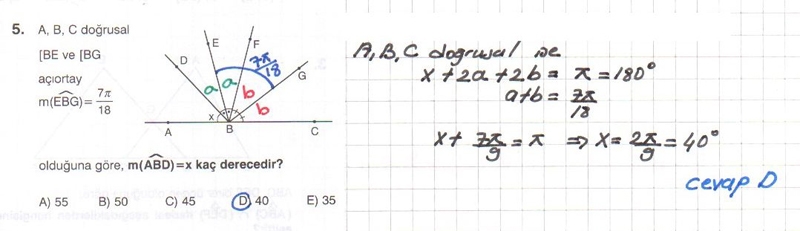 5. A, B, C doğrusal
[BE ve [BG
açıortay
m(EBG)= 7π/18
D
E
F
G
7π/18
a
a
b
b
x
A
B
C
olduğuna göre, m(ABD)=x kaç derecedir?
A) 55 B) 50 C) 45 D) 40 E) 35
A, B, C doğrusal ise
x+2a+2b = π = 180°
a+b = 7π/18
x+ 7π/9 = π ⇒ x = 2π/9 = 40°
cevap D